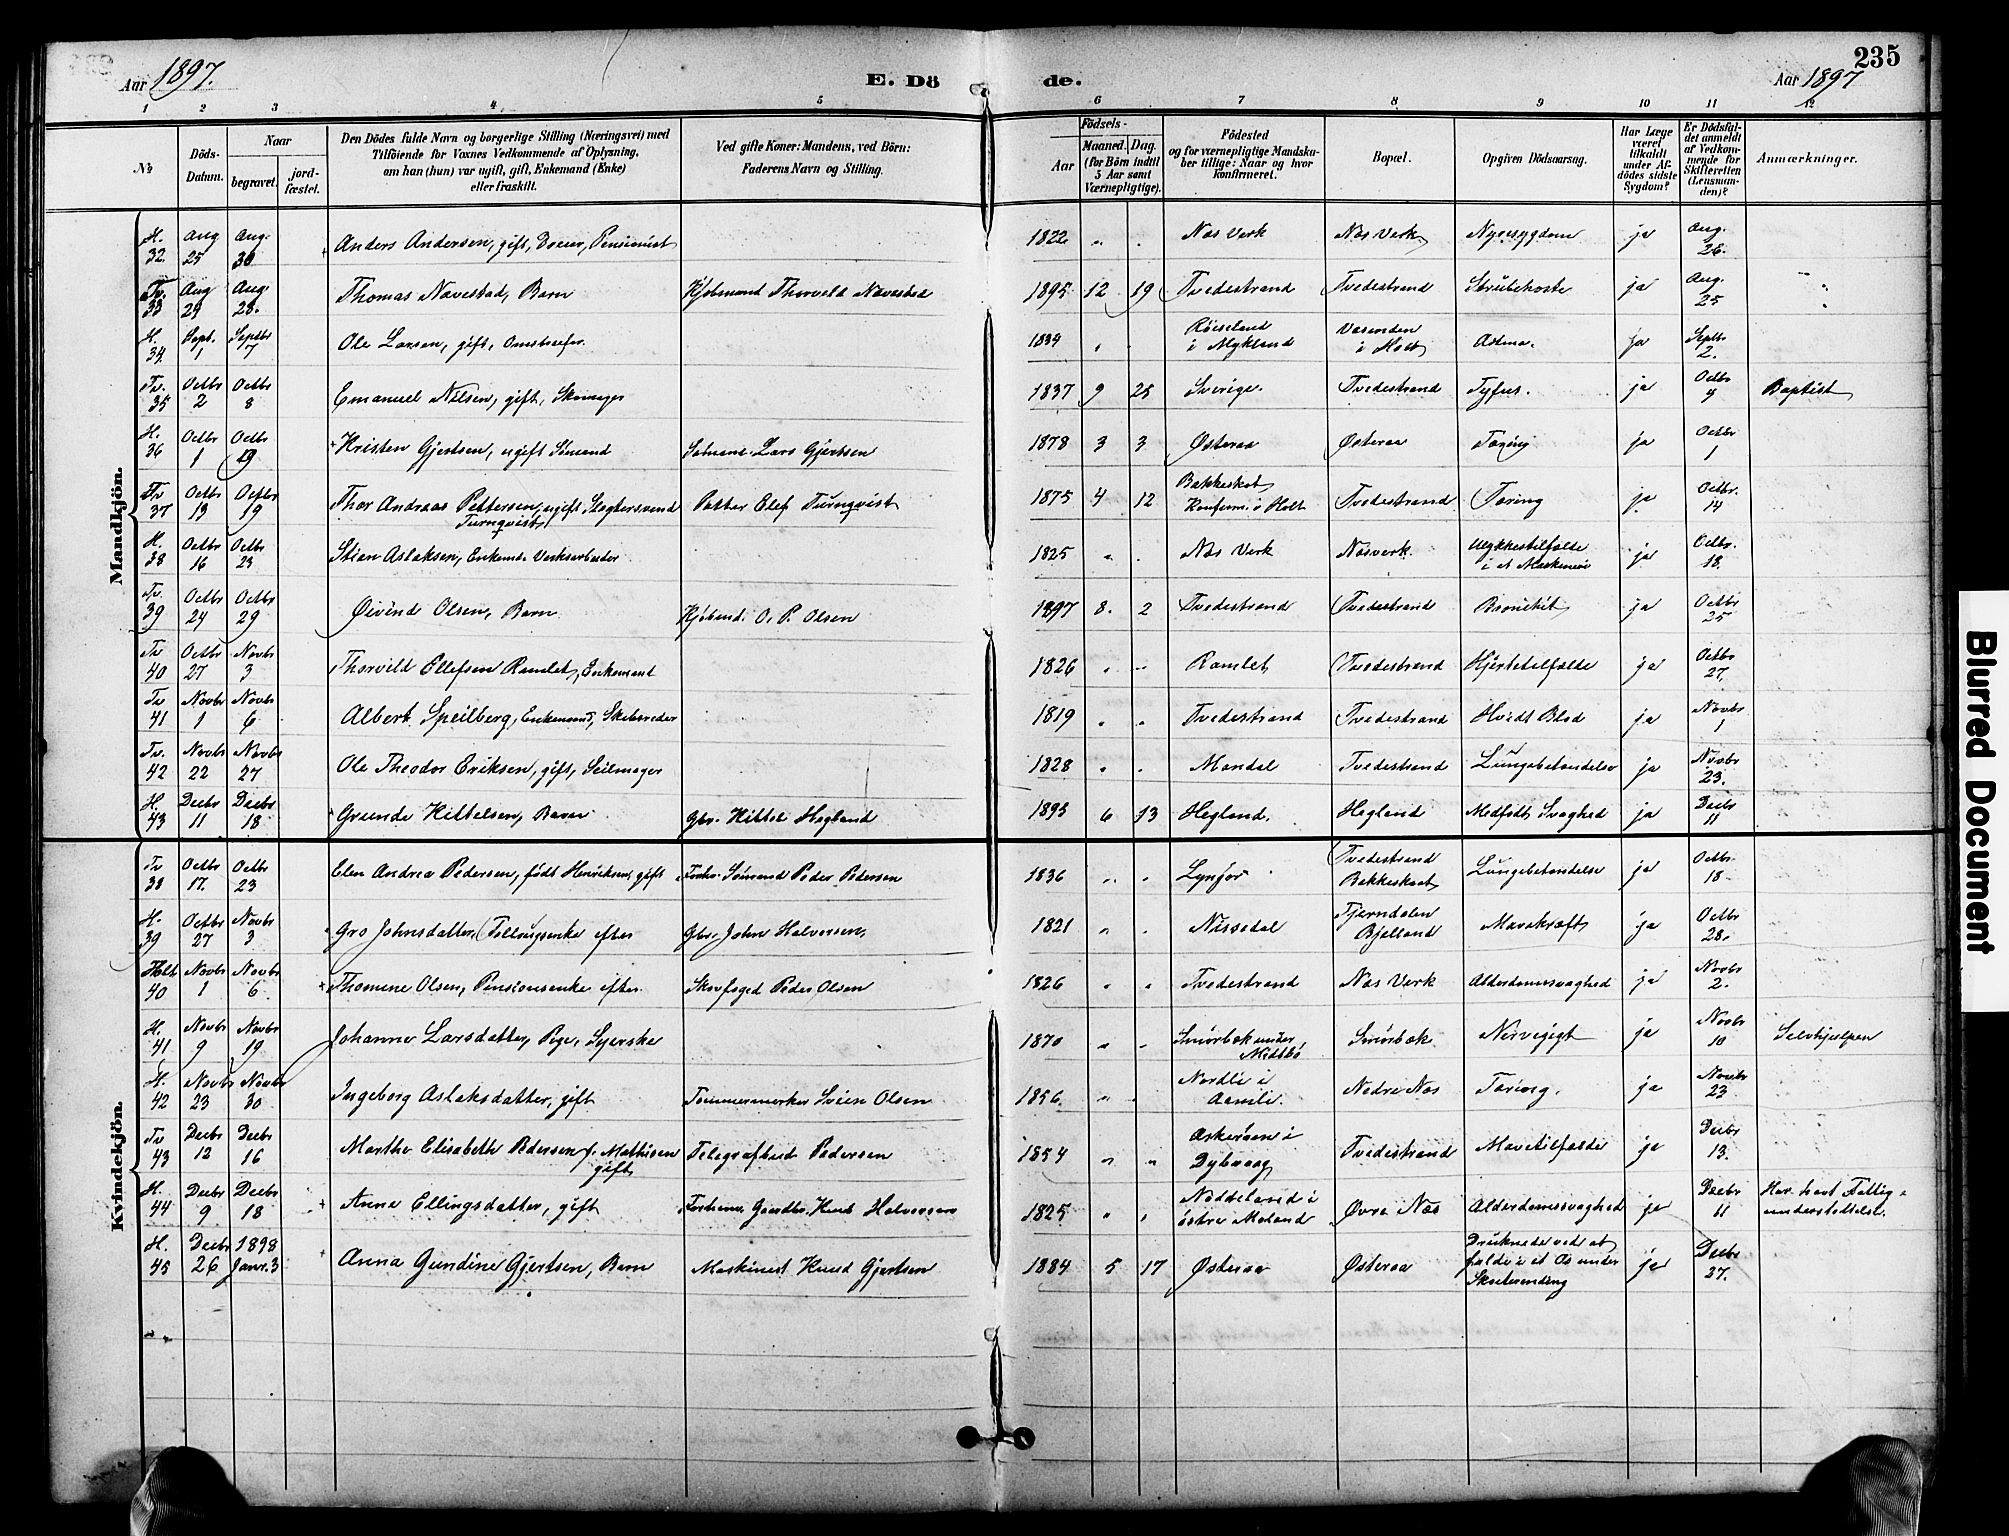 235
Aar 1897.
E. Dö
de.
Aar 1897
1 2 3 4 5 6 7 8 9 10 11 12
No
Döds-Datum.
Naar
begravet.
jord-fæstet.
Den Dödes fulde Navn og borgerlige Stilling (Næringsvei) med
Tilföiende for Voxnes Vedkommende af Oplysning,
om han (hun) var ugift, gift, Enkemand (Enke)
eller fraskilt.
Ved gifte Koner: Mandens, ved Börn:
Faderens Navn og Stilling.
Födsels-
Aar
Maaned. Dag.
(for Börn indtil
5 Aar samt
Værnepligtige).
Födested
og for værnepligtige Mandska-
ber tillige: Naar og hvor
konfirmeret.
Bopæl.
Opgiven Dödsaarsag.
Har Læge
været
tilkaldt
under Af-
dödes sidste
Sygdom?
Er Dödsfal-
det anmeldt
af Vedkom-
mende for
Skifteretten
(Lensman-
den)?
Anmærkninger.
Mandkjön.
H. 32. Aug 25 Aug. 30 Anders Andersen, gift, Pensionist 1822 " " Næs Verk Næs Verk Nyresygdom ja Aug. 26.
Tv. 33 Aug 29 Aug. 28. Thomas Navestad, Barn Kjöbmand Thorvald Navestad 1895 12 19 Tvedestrand Tvedestrand Strubehoste ja Aug. 25
H. 34. Sept. 1 Septbr 7 Ole Larsen, gift, 1834 " Röiseland i Mykland i Holt Astma. ja Septb 2.
Tv. 35 Octbr 2 Octbr 8 Emanuel Nilsen, gift, Skomager 1837 9 25 Sverige. Tvedestrand Tyfus. ja Octbr 4 Baptist
H. 36 Octbr 1 Octbr 19 Kristen Gjertsen, ugift Sömand Sömand Lars Gjertsen 1878 3 3 Østeraa Østeraa Tæring ja Octbr 1
Tv 37 Octbr 13 Octbr 19 Thor Andreas Pettersen, ugift Slagtersvend Turnqvist Petter Elef Turnqvist 1875 4 12 Bakkeskat Konferm. i Holt Tvedestrand Tæring ja Octbr. 14
H. 38 Octbr 16 Octbr 23 Stian Aslaksen, Enkem. Verksarbeider 1825 " " Næs Verk Næsverk. Ulykkestilfælde i et Maskineri ja Octbr. 18.
Tv. 39 Octbr 24 Octbr 29 Øivind Olsen, Barn Kjöbmd. O. P. Olsen 1897 8. 2 Tvedestrand Tvedestrand Bronchit ja Octbr 25
Tv 40 Octbr 27 Novbr 3 Thorvild Ellefsen Ramlet, Enkemand 1826 " " Ramlet Tvedestrand Hjertetilfælde ja Octbr 27.
Tv 41 Novbr 1 Novbr 6 Albert Speilberg, Enkemand, Skibsreder 1819 " " Tvedestrand Tvedestrand Hvidt Blod ja Novbr 1
Tv. 42 Novbr 22 Novbr 27 Ole Theodor Eriksen, gift, Seilmager 1828 " " Mandal Tvedestrand Lungebetændelse ja Novbr 23.
H. 43 Decbr 11 Decbr 18 Grunde Kittelsen, Barn Gbr. Kittel Hegland 1895 6 13 Hegland. Hegland Medfött Svaghed ja Decbr 11
Kvindekjön.
Tv 38 Octbr 17. Octbr 23 Elen Andrea Pedersen, født Henriksen, gift Forhv. Sömand Peder Pedersen 1836 " " Lyngör Tvedestrand Bakkeskaat Lungebetændelse ja Octbr. 18
H. 39 Octbr 27 Novbr 3 Gro Johnsdatter, Fellougsenke efter Gbr. John Halvorsen, 1821 " " Nissedal Tjerndalen Bjelland Mavekræft ja Octbr 28.
Holt 40 Novbr 1 Novbr 6 Thomine Olsen, Pensionsenke efter Skovfoged Peder Olsen 1826 " " Tvedestrand Næs Verk Alderdomssvaghed ja Novbr 2.
H. 41 Novbr 9 Novbr 19 Johanne Larsdatter, Pige, Syerske 1870 " " Smörbæk under Midtbö Smörbæk Nervegigt ja Novbr 10 Selvhjulpen
H. 42 Novbr 23 Novbr 30 Ingeborg Aslaksdatter, gift Tømmermerker Svein Olsen 1856 " " Nordli i Aamli. Nedre Næs Tæring. ja Novbr 23
Tv 43 Decbr 12 Decbr 16 Marthe Elisabeth Pedersen f. Mathisen gift Telegrafbud Pedersen 1854 " " Askeröen i Dybvaag Tvedestrand Mavetilfælde ja Decbr 13.
H. 44 Decbr 9 Decbr 18 Anne Ellingsdatter, gift Knud Halvorsen 1825 " " i östre Moland Øvre Næs Alderdomssvaghed ja Decbr 11 Har havt Fattigunderstöttelse.
H. 45 Decbr 26 1898 Janr. 3 Anna Gundine Gjertsen, Barn Maskinist Knud Gjertsen 1884 5 17 Østeraa Østeraa Druknede ved at falde i et Os under Skøiterending ja Decbr 27.
Blurred Document